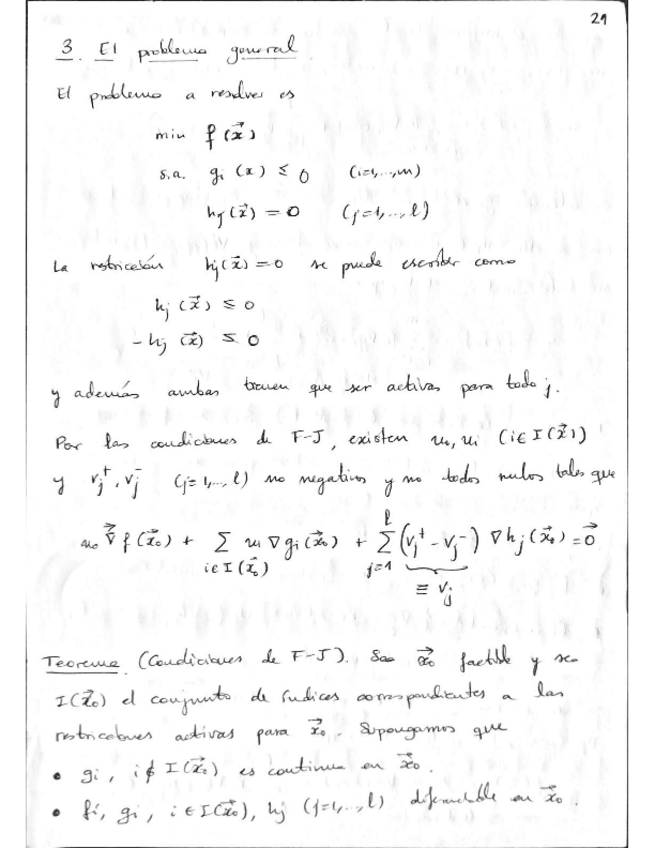 21
3. El problema general
El problema a resolver es
min f(x⃗)
s.a. gi (x) ≤ 0 (i=1,...,m)
hj (x⃗) = 0 (j=1,...,l)
La restricción hj(x⃗)=0 se puede escribir como
hj (x⃗) ≤ 0
-hj (x⃗) ≤ 0
y además ambas tienen que ser activas para todo j.
Por las condiciones de F-J, existen u₀, ui (i∈I(x⃗))
y vj⁺, vj⁻ (j=1,..,l) no negativos y no todos nulos tales que
u₀ ∇⃗ f(x⃗₀) + ∑ ui ∇gi(x⃗₀) + ∑ (vj⁺ - vj⁻) ∇hj(x⃗₀) = 0⃗
i∈I(x⃗₀) j=1 l
≡ vj
Teorema. (Condiciones de F-J). Sea x⃗₀ factible y sea
I(x⃗₀) el conjunto de índices correspondientes a las
restricciones activas para x⃗₀. Supongamos que
• gi, i∉I(x⃗₀) es continua en x⃗₀.
• f, gi, i∈I(x⃗₀), hj (j=1,...,l) diferenciable en x⃗₀.